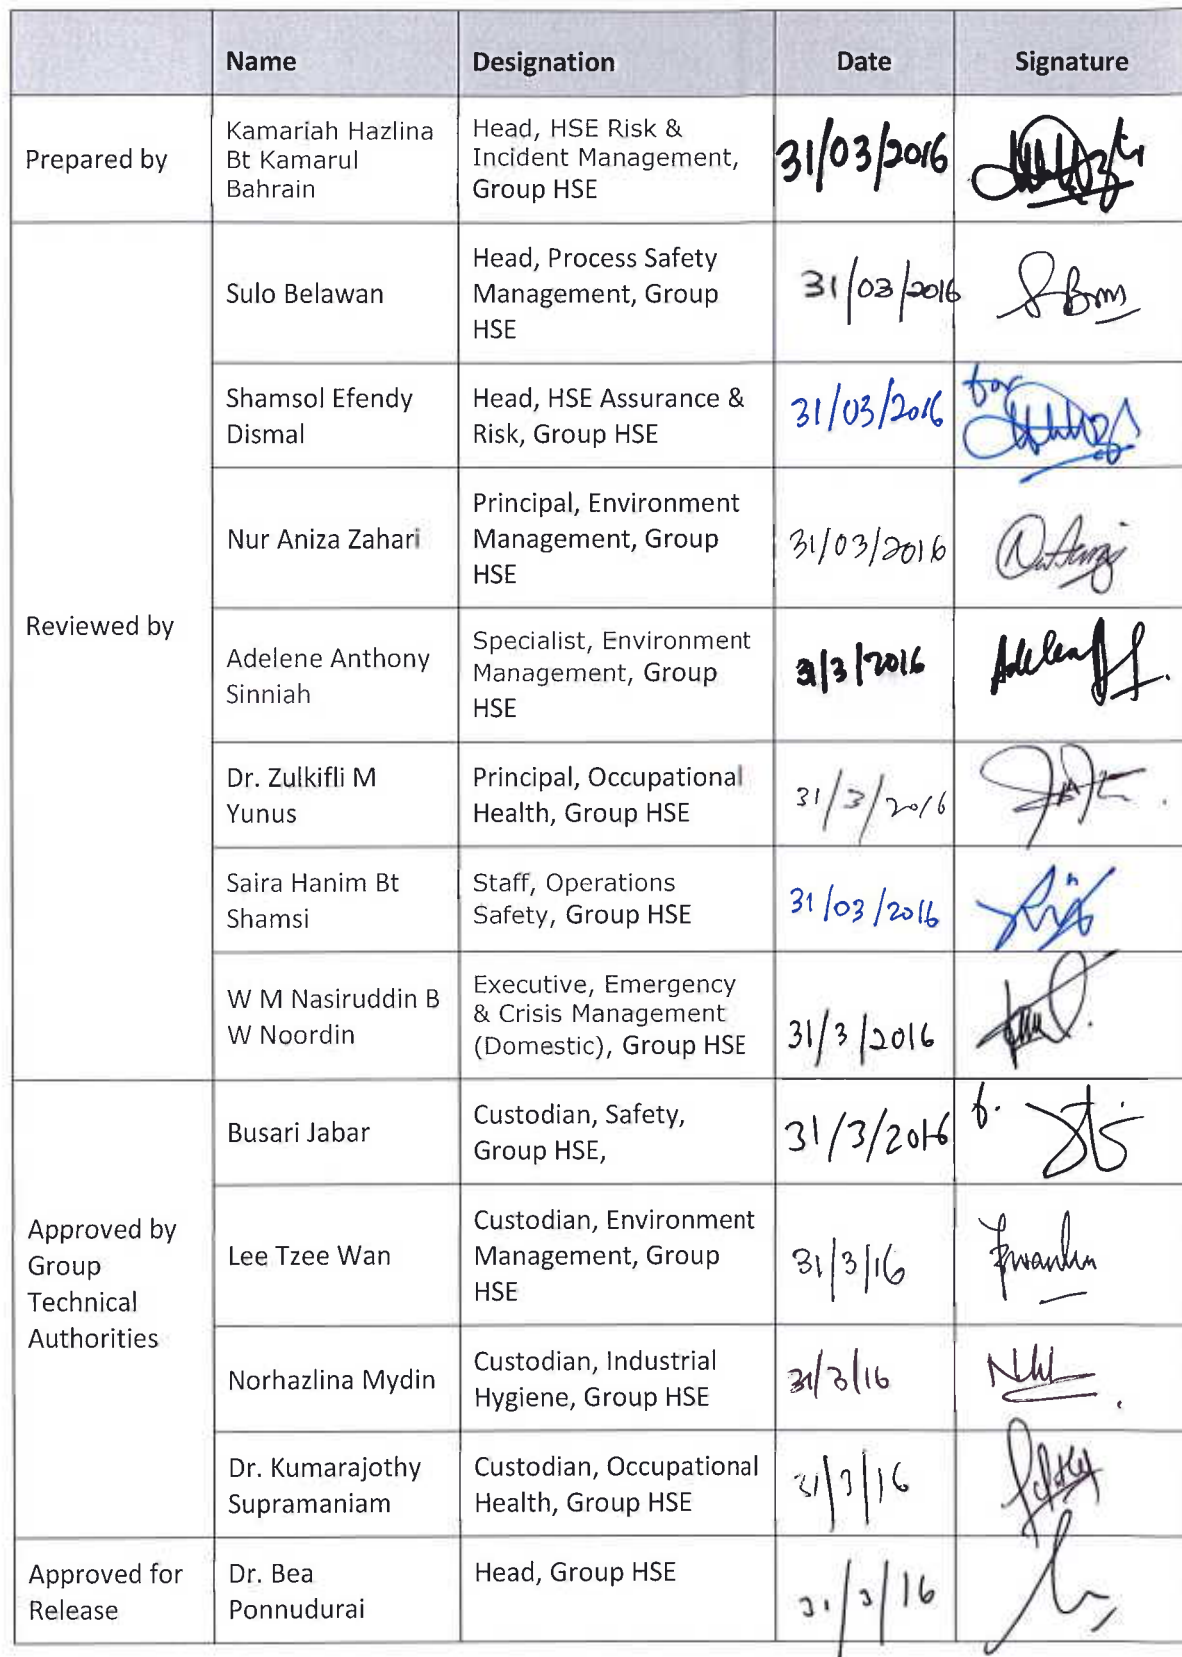 Name Designation Date Signature
Prepared by
Kamariah Hazlina
Bt Kamarul
Bahrain
Head, HSE Risk &
Incident Management,
Group HSE
31/03/2016
Reviewed by
Sulo Belawan
Head, Process Safety
Management, Group
HSE
31/03/2016
Shamsol Efendy
Dismal
Head, HSE Assurance &
Risk, Group HSE
31/03/2016
for
Nur Aniza Zahari
Principal, Environment
Management, Group
HSE
31/03/2016
Adelene Anthony
Sinniah
Specialist, Environment
Management, Group
HSE
31/3/2016
Dr. Zulkifli M
Yunus
Principal, Occupational
Health, Group HSE
31/3/2016
Saira Hanim Bt
Shamsi
Staff, Operations
Safety, Group HSE
31/03/2016
W M Nasiruddin B
W Noordin
Executive, Emergency
& Crisis Management
(Domestic), Group HSE
31/3/2016
Approved by
Group
Technical
Authorities
Busari Jabar
Custodian, Safety,
Group HSE,
31/3/2016
f.
Lee Tzee Wan
Custodian, Environment
Management, Group
HSE
31/3/16
Norhazlina Mydin
Custodian, Industrial
Hygiene, Group HSE
31/3/16
Dr. Kumarajothy
Supramaniam
Custodian, Occupational
Health, Group HSE
31/3/16
Approved for
Release
Dr. Bea
Ponnudurai
Head, Group HSE
31/3/16